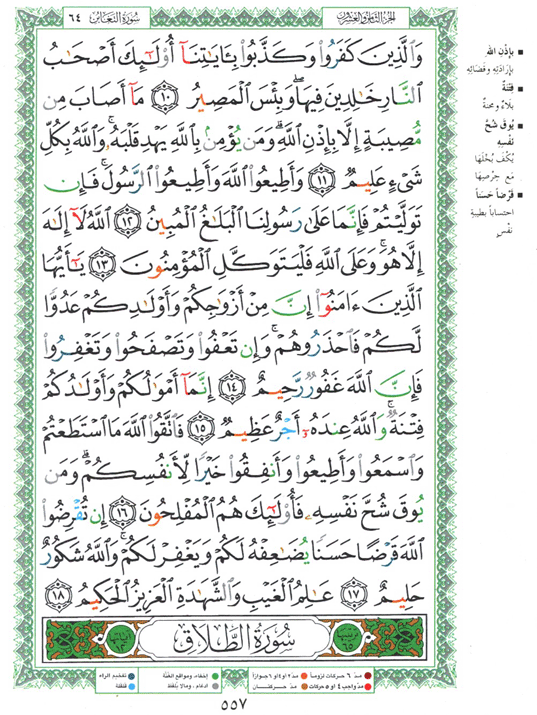 سُورَةُ التَّغَابُن ٦٤
الجزء الثامن والعشرون
وَالَّذِينَ كَفَرُوا وَكَذَّبُوا بِـَٔايَٰتِنَا أُوْلَٰٓئِكَ أَصْحَٰبُ
النَّارِ خَٰلِدِينَ فِيهَا وَبِئْسَ الْمَصِيرُ ١٠ مَآ أَصَابَ مِن
مُّصِيبَةٍ إِلَّا بِإِذْنِ اللَّهِ وَمَن يُؤْمِنۢ بِاللَّهِ يَهْدِ قَلْبَهُۥ وَاللَّهُ بِكُلِّ
شَىْءٍ عَلِيمٌ ١١ وَأَطِيعُوا اللَّهَ وَأَطِيعُوا الرَّسُولَ فَإِن
تَوَلَّيْتُمْ فَإِنَّمَا عَلَىٰ رَسُولِنَا الْبَلَٰغُ الْمُبِينُ ١٢ اللَّهُ لَآ إِلَٰهَ
إِلَّا هُوَ وَعَلَى اللَّهِ فَلْيَتَوَكَّلِ الْمُؤْمِنُونَ ١٣ يَٰٓأَيُّهَا
الَّذِينَ ءَامَنُوٓا إِنَّ مِنْ أَزْوَٰجِكُمْ وَأَوْلَٰدِكُمْ عَدُوًّا
لَّكُمْ فَاحْذَرُوهُمْ وَإِن تَعْفُوا وَتَصْفَحُوا وَتَغْفِرُوا
فَإِنَّ اللَّهَ غَفُورٌ رَّحِيمٌ ١٤ إِنَّمَآ أَمْوَٰلُكُمْ وَأَوْلَٰدُكُمْ
فِتْنَةٌ وَاللَّهُ عِندَهُۥٓ أَجْرٌ عَظِيمٌ ١٥ فَاتَّقُوا اللَّهَ مَا اسْتَطَعْتُمْ
وَاسْمَعُوا وَأَطِيعُوا وَأَنفِقُوا خَيْرًا لِّأَنفُسِكُمْ وَمَن
يُوقَ شُحَّ نَفْسِهِۦ فَأُوْلَٰٓئِكَ هُمُ الْمُفْلِحُونَ ١٦ إِن تُقْرِضُوا
اللَّهَ قَرْضًا حَسَنًا يُضَٰعِفْهُ لَكُمْ وَيَغْفِرْ لَكُمْ وَاللَّهُ شَكُورٌ
حَلِيمٌ ١٧ عَٰلِمُ الْغَيْبِ وَالشَّهَٰدَةِ الْعَزِيزُ الْحَكِيمُ ١٨
ترتيبها ٦٥
سُورَةُ الطَّلَاقِ
آياتها ١٢
بإذن الله
بإرادته وقضائه
فتنة
بلاء ومحنة
يوق شح
نفسه
يكف بخلها
مع حرصها
قرضاً حسناً
احتساباً بطيبة
نفس
مد ٦ حركات لزوماً
مد ٢ أو ٤ أو ٦ جوازاً
إخفاء، ومواقع الغنة
تفخيم الراء
مد واجب ٤ أو ٥ حركات
مد حركتان
إدغام، وما لا يلفظ
قلقلة
٥٥٧